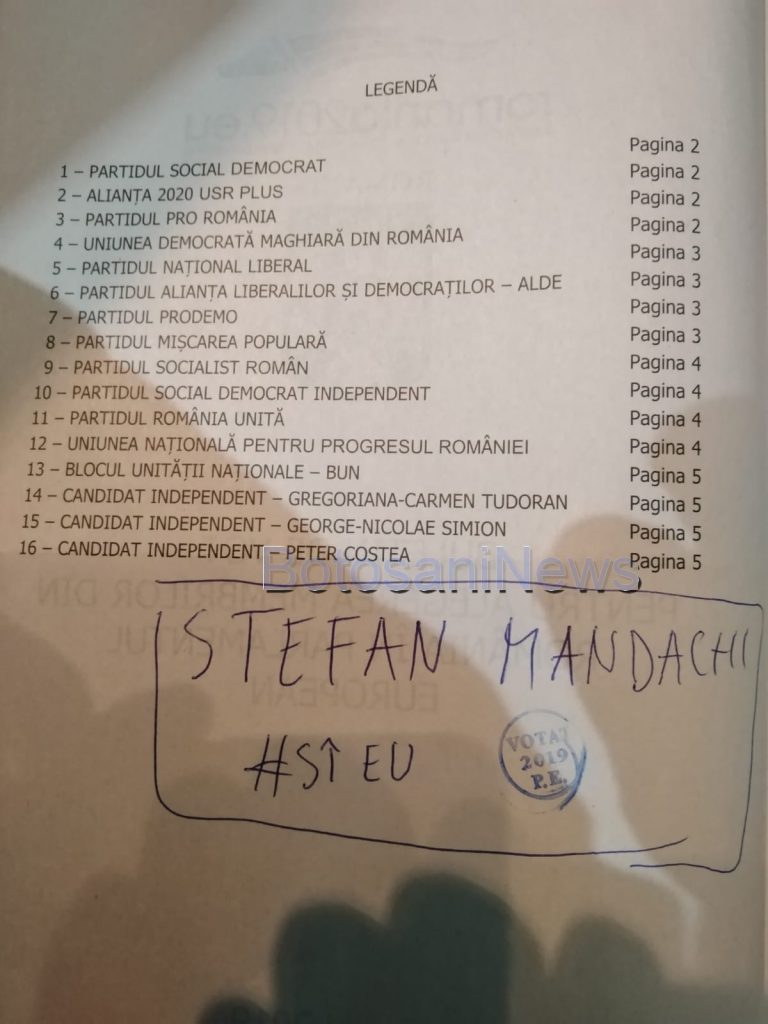 LEGENDĂ
1 – PARTIDUL SOCIAL DEMOCRAT Pagina 2
2 – ALIANȚA 2020 USR PLUS Pagina 2
3 – PARTIDUL PRO ROMÂNIA Pagina 2
4 – UNIUNEA DEMOCRATĂ MAGHIARĂ DIN ROMÂNIA Pagina 2
5 – PARTIDUL NAȚIONAL LIBERAL Pagina 3
6 – PARTIDUL ALIANȚA LIBERALILOR ȘI DEMOCRAȚILOR – ALDE Pagina 3
7 – PARTIDUL PRODEMO Pagina 3
8 – PARTIDUL MIȘCAREA POPULARĂ Pagina 3
9 – PARTIDUL SOCIALIST ROMÂN Pagina 4
10 – PARTIDUL SOCIAL DEMOCRAT INDEPENDENT Pagina 4
11 – PARTIDUL ROMÂNIA UNITĂ Pagina 4
12 – UNIUNEA NAȚIONALĂ PENTRU PROGRESUL ROMÂNIEI Pagina 4
13 – BLOCUL UNITĂȚII NAȚIONALE – BUN Pagina 5
14 – CANDIDAT INDEPENDENT – GREGORIANA-CARMEN TUDORAN Pagina 5
15 – CANDIDAT INDEPENDENT – GEORGE-NICOLAE SIMION Pagina 5
16 – CANDIDAT INDEPENDENT – PETER COSTEA Pagina 5
BotosaniNews
STEFAN MANDACHI
#SÎ EU
VOTAT
2019
P.E.